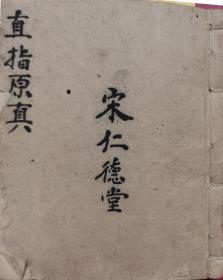 直指原真
宋仁德堂